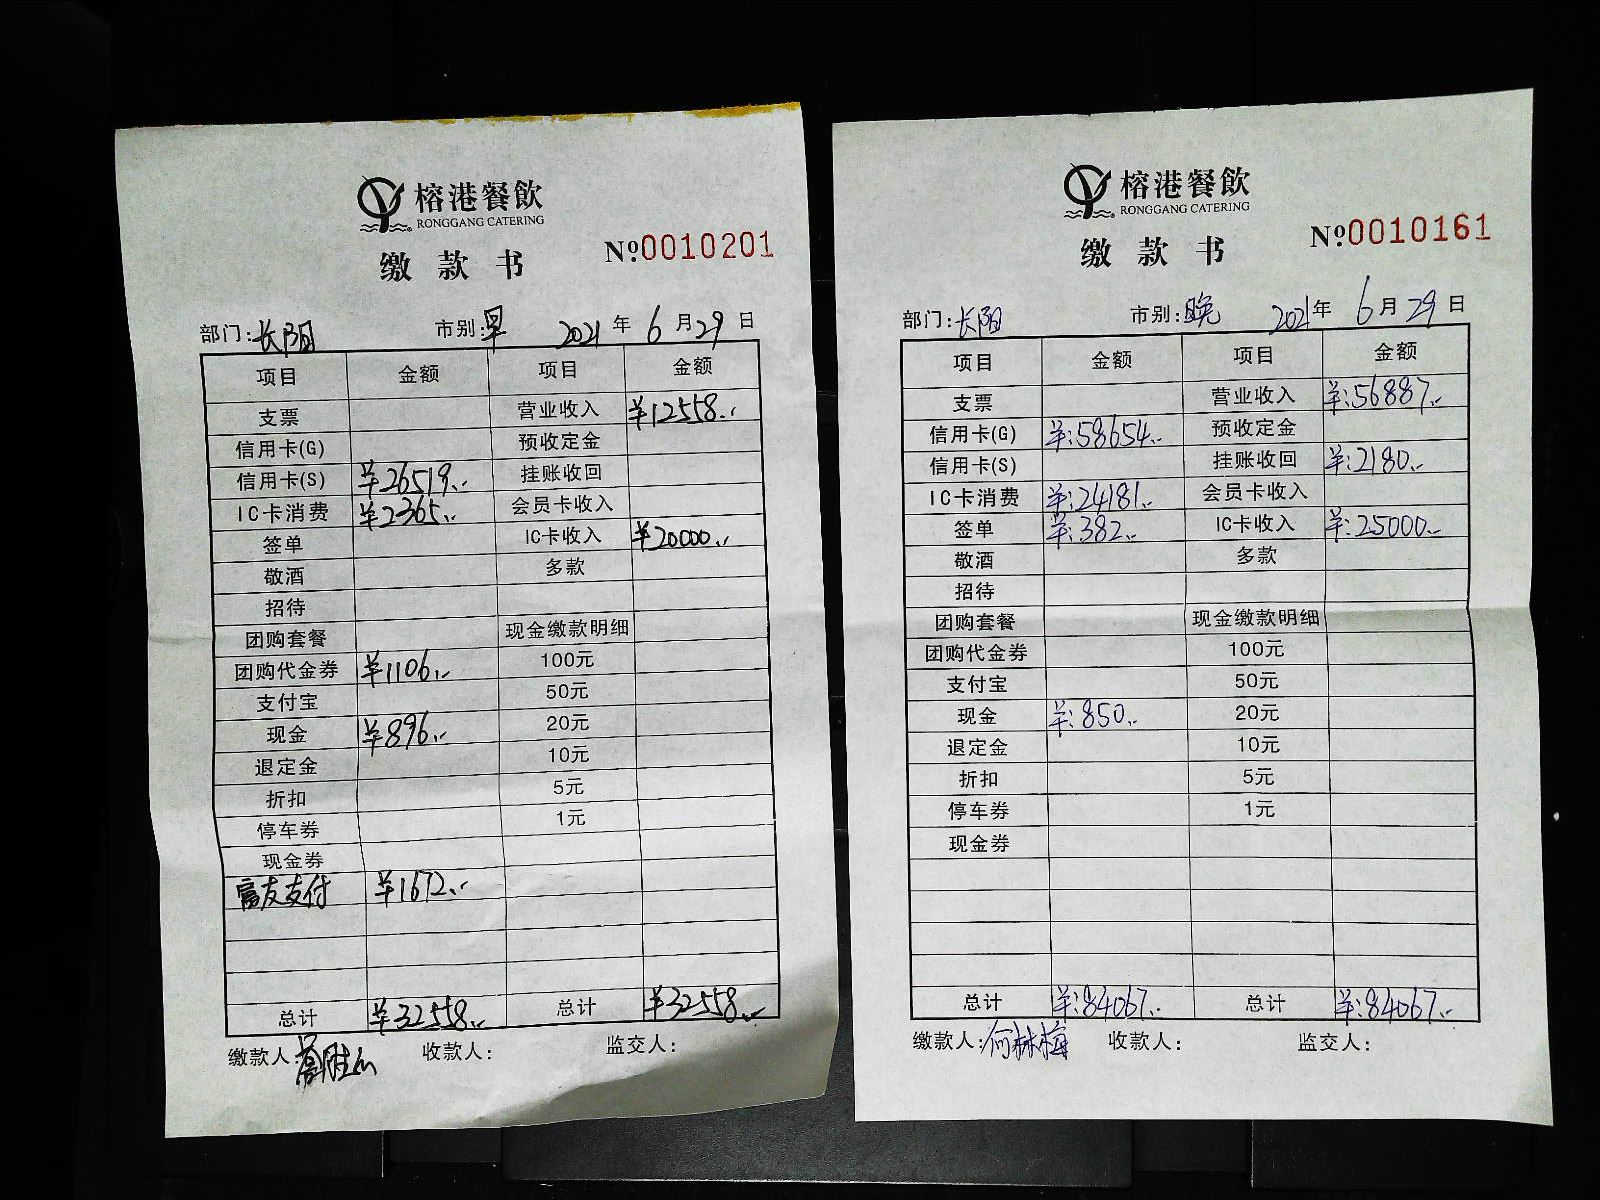 榕港餐飲
RONGGANG CATERING
缴款书 №0010201
部门:长阳 市别:早 2021年6月29日
项目 金额 项目 金额
支票 营业收入 ¥12558.-
信用卡(G) 预收定金
信用卡(S) ¥26519.- 挂账收回
IC卡消费 ¥2365.- 会员卡收入
签单 IC卡收入 ¥20000.-
敬酒 多款
招待
团购套餐 现金缴款明细
团购代金券 ¥1106.- 100元
支付宝 50元
现金 ¥896.- 20元
退定金 10元
折扣 5元
停车券 1元
现金券
富友支付 ¥1672.-
总计 ¥32558.- 总计 ¥32558.-
缴款人: 收款人: 监交人:
榕港餐飲
RONGGANG CATERING
缴款书 №0010161
部门:长阳 市别:晚 2021年6月29日
项目 金额 项目 金额
支票 营业收入 ¥:56887.-
信用卡(G) ¥:58654.- 预收定金
信用卡(S) 挂账收回 ¥:2180.-
IC卡消费 ¥:24181.- 会员卡收入
签单 ¥:382.- IC卡收入 ¥:25000.-
敬酒 多款
招待
团购套餐 现金缴款明细
团购代金券 100元
支付宝 50元
现金 ¥:850.- 20元
退定金 10元
折扣 5元
停车券 1元
现金券
总计 ¥:84067.- 总计 ¥:84067.-
缴款人:何林梅 收款人: 监交人: